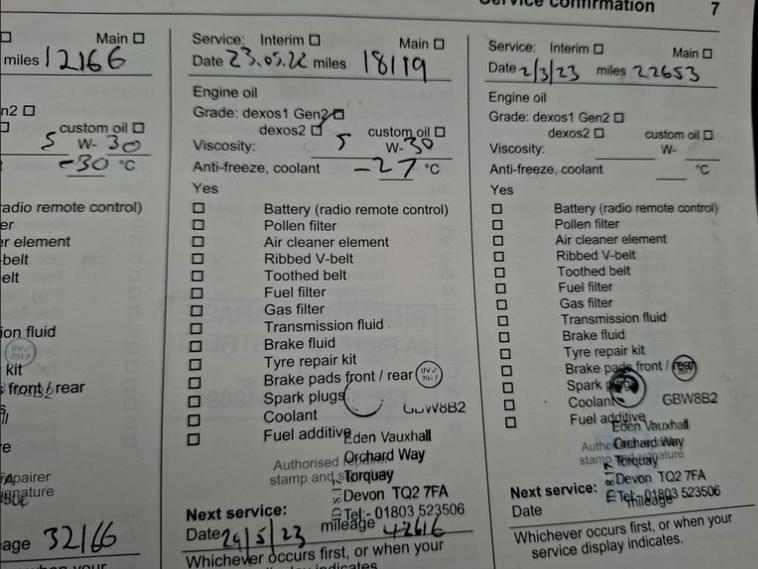 Service confirmation 7
Main
miles 12166
n2
custom oil
5 W- 30
-30 °C
radio remote control)
er
r element
-belt
elt
ion fluid
UV✓ 2017
kit
s front / rear
e
repairer
signature
age 32166
when your
Service: Interim Main
Date 23.05.22 miles 18119
Engine oil
Grade: dexos1 Gen2
dexos2 custom oil
Viscosity: 5 W-30
Anti-freeze, coolant -27 °C
Yes
Battery (radio remote control)
Pollen filter
Air cleaner element
Ribbed V-belt
Toothed belt
Fuel filter
Gas filter
Transmission fluid
Brake fluid
Tyre repair kit
Brake pads front / rear
Spark plugs
Coolant GBW8B2
Fuel additive
Eden Vauxhall
Authorised repairer Orchard Way
stamp and signature Torquay
Devon TQ2 7FA
Next service: Tel:- 01803 523506
Date 29/5/23 mileage 42616
Whichever occurs first, or when your
service display indicates.
Service: Interim Main
Date 2/3/23 miles 22653
Engine oil
Grade: dexos1 Gen2
dexos2 custom oil
Viscosity: W-
Anti-freeze, coolant °C
Yes
Battery (radio remote control)
Pollen filter
Air cleaner element
Ribbed V-belt
Toothed belt
Fuel filter
Gas filter
Transmission fluid
Brake fluid
Tyre repair kit
Brake pads front / rear
Spark plugs
Coolant GBW8B2
Fuel additive
Eden Vauxhall
Orchard Way
stamp and signature Torquay
Devon TQ2 7FA
Next service: Tel:- 01803 523506
Date mileage
Whichever occurs first, or when your
service display indicates.